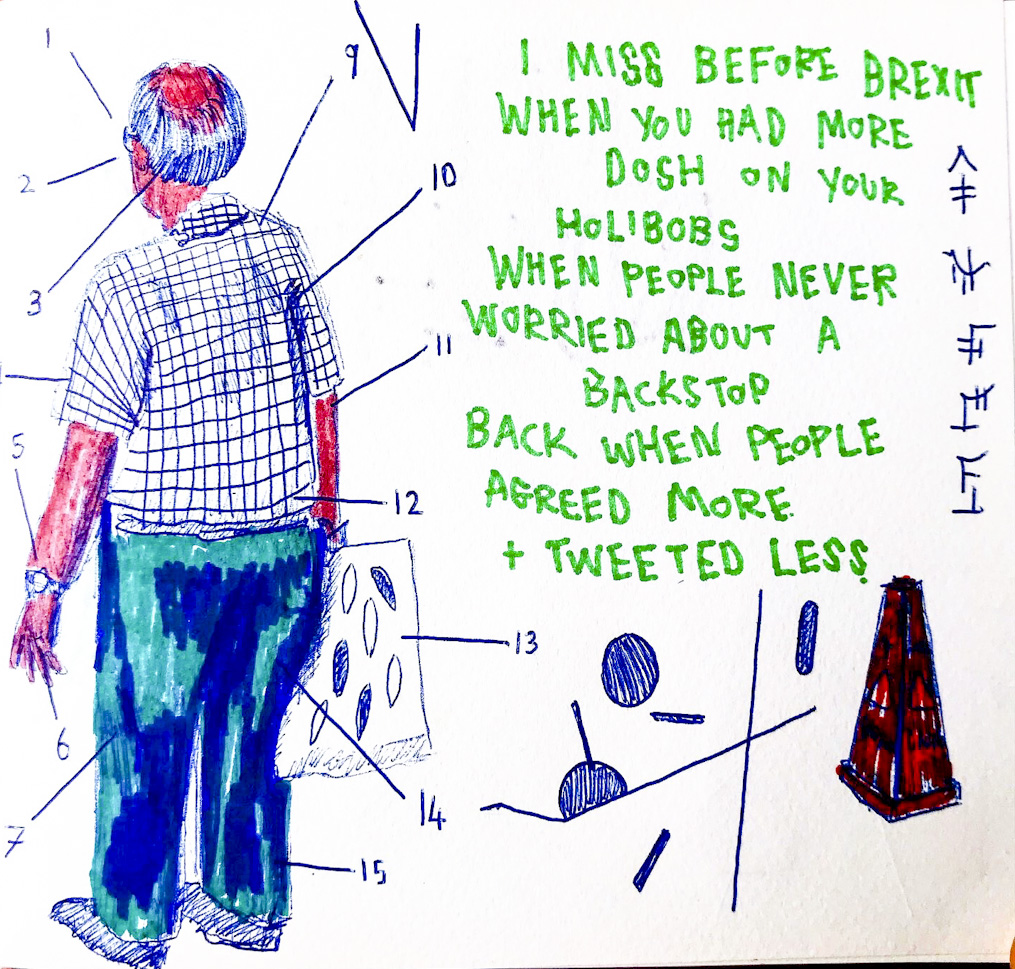 I MISS BEFORE BREXIT
WHEN YOU HAD MORE
DOSH ON YOUR
HOLIBOBS
WHEN PEOPLE NEVER
WORRIED ABOUT A
BACKSTOP
BACK WHEN PEOPLE
AGREED MORE
+ TWEETED LESS
1
2
3
5
6
7
9
10
11
12
13
14
15